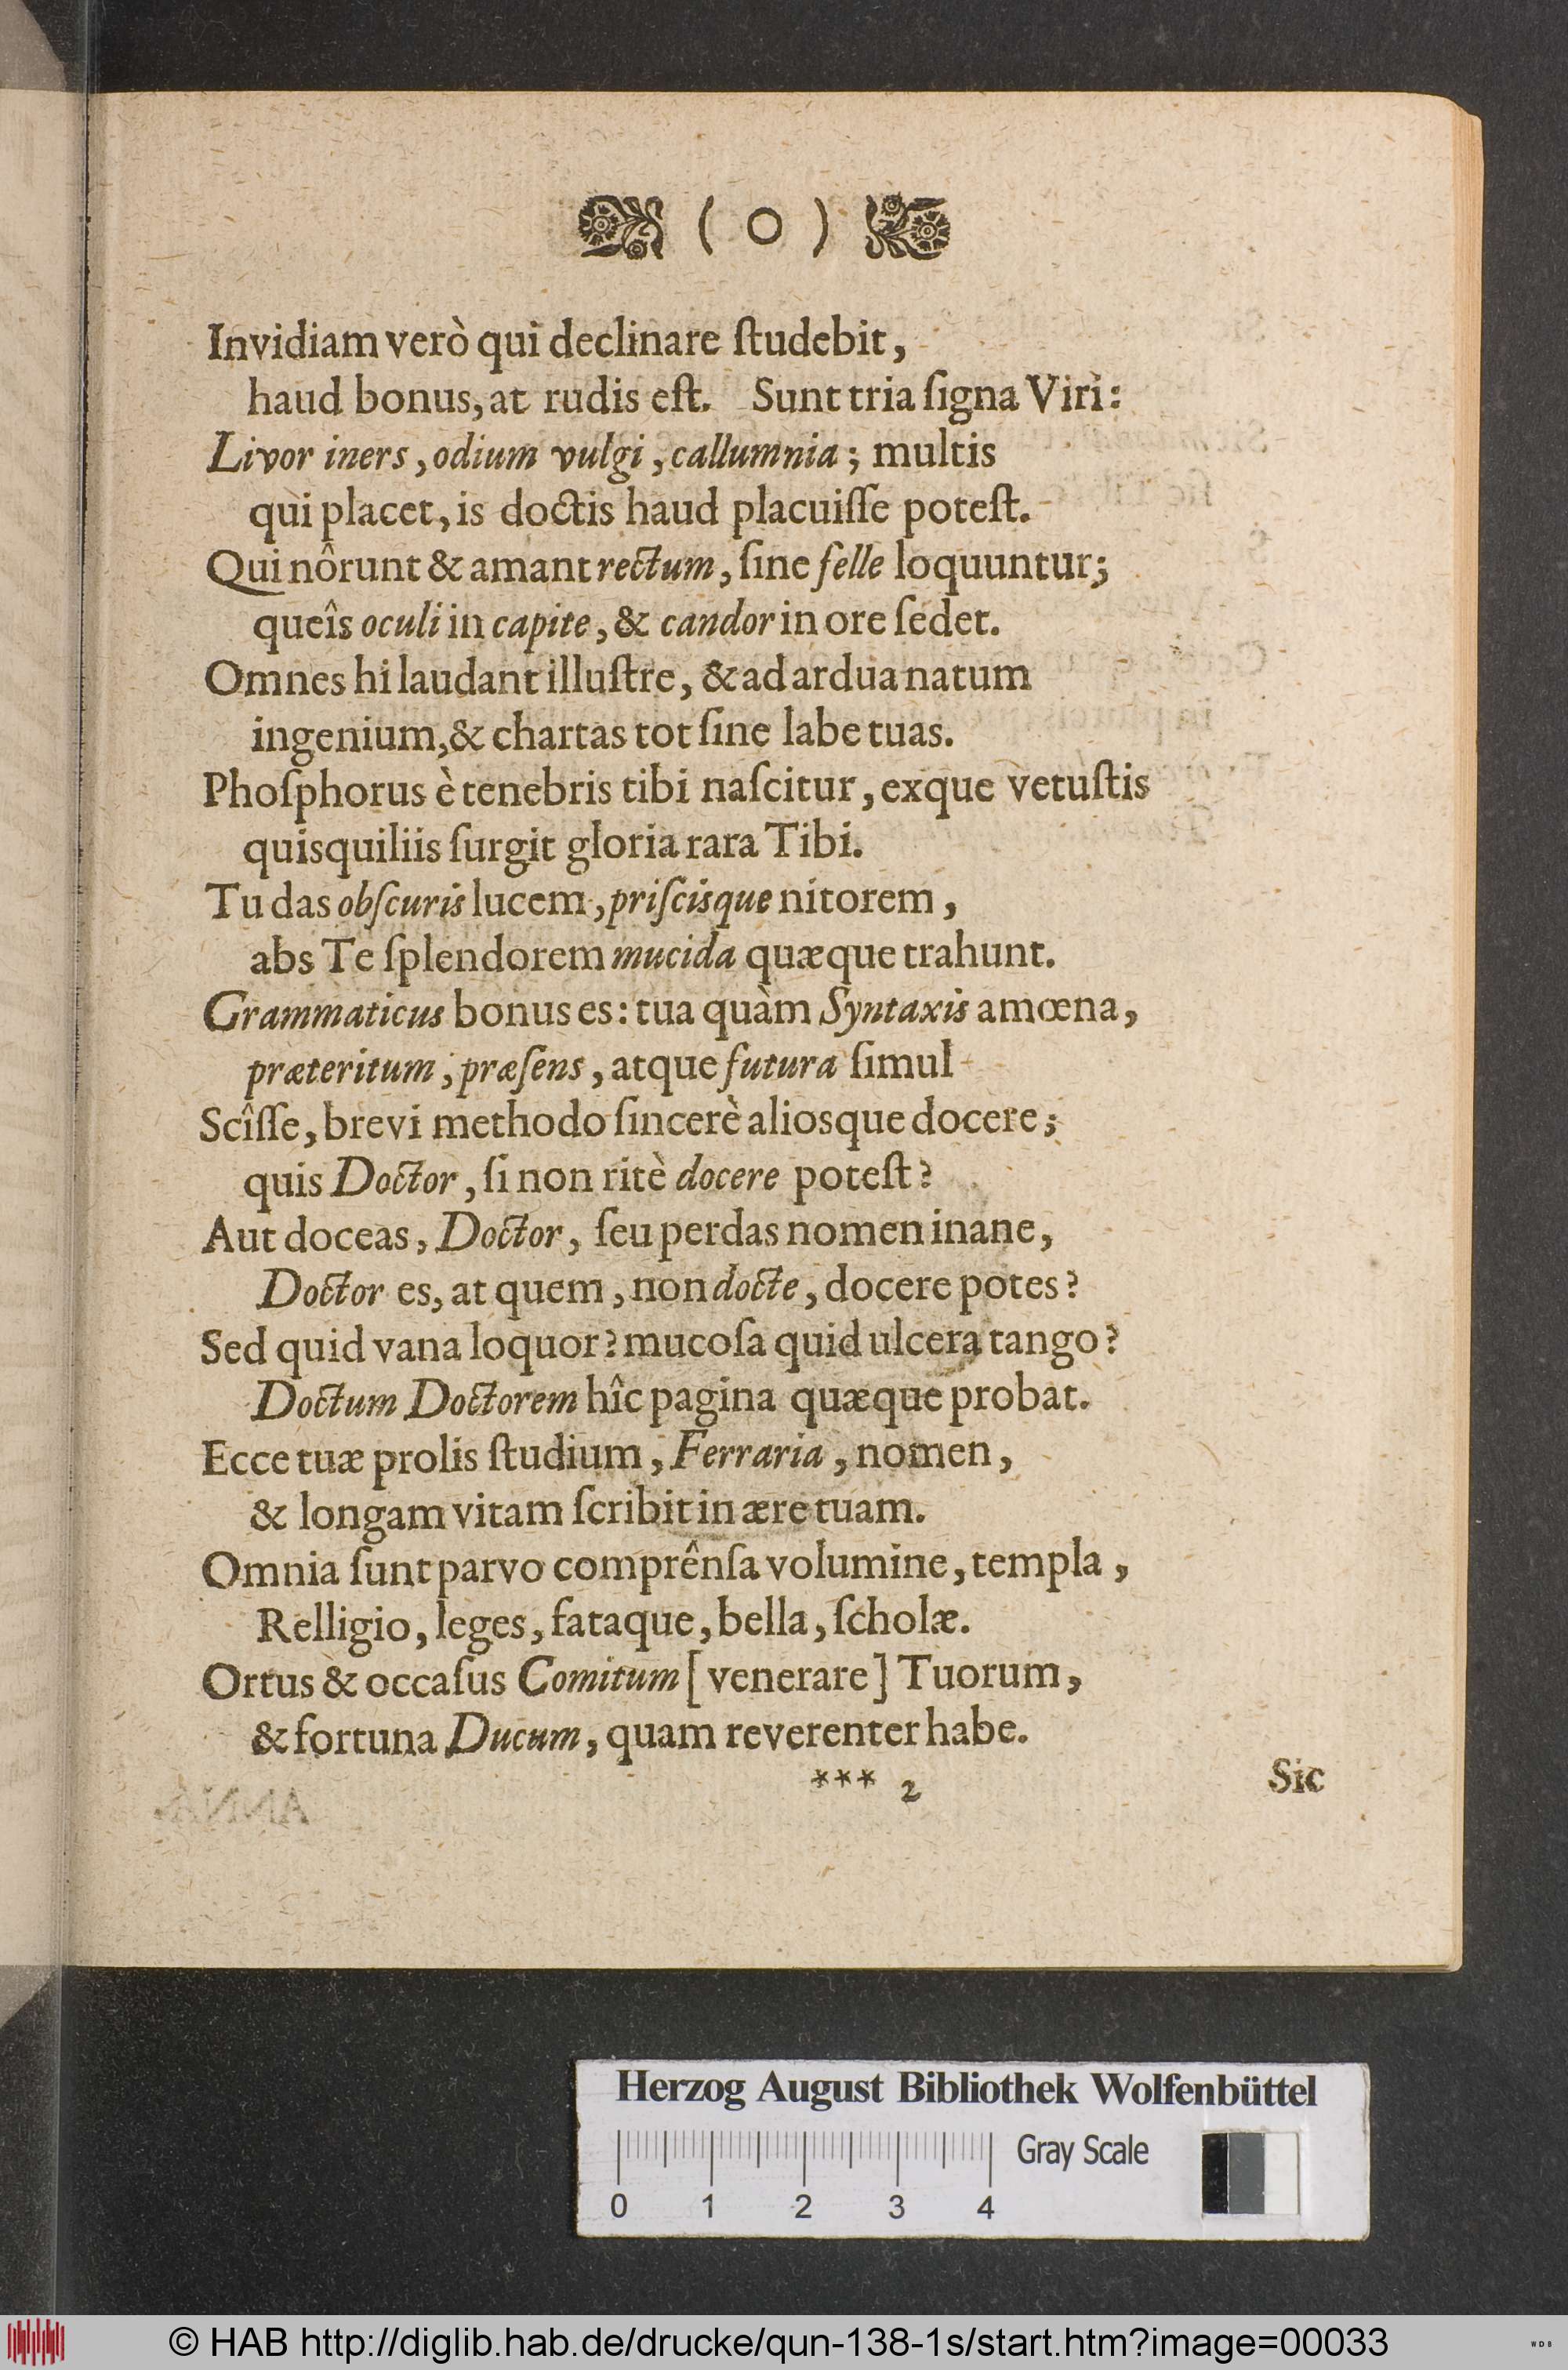 ( O )
Invidiam verò qui declinare ſtudebit,
haud bonus, at rudis eſt. Sunt tria ſigna Viri:
Livor iners, odium vulgi, callumnia; multis
qui placet, is doctis haud placuiſſe poteſt.
Qui nôrunt & amant rectum, ſine felle loquuntur;
queîs oculi in capite, & candor in ore ſedet.
Omnes hi laudant illuſtre, & ad ardua natum
ingenium, & chartas tot ſine labe tuas.
Phoſphorus è tenebris tibi naſcitur, exque vetuſtis
quisquiliis ſurgit gloria rara Tibi.
Tu das obſcuris lucem, priſcisque nitorem,
abs Te ſplendorem mucida quæque trahunt.
Grammaticus bonus es: tua quàm Syntaxis amœna,
præteritum, præſens, atque futura ſimul
Scîſſe, brevi methodo ſincerè aliosque docere;
quis Doctor, ſi non ritè docere poteſt?
Aut doceas, Doctor, ſeu perdas nomen inane,
Doctor es, at quem, non docte, docere potes?
Sed quid vana loquor? mucoſa quid ulcera tango?
Doctum Doctorem hîc pagina quæque probat.
Ecce tuæ prolis ſtudium, Ferraria, nomen,
& longam vitam ſcribit in ære tuam.
Omnia ſunt parvo comprênſa volumine, templa,
Relligio, leges, fataque, bella, ſcholæ.
Ortus & occaſus Comitum [venerare] Tuorum,
& fortuna Ducum, quam reverenter habe.
*** 2
Sic
Herzog August Bibliothek Wolfenbüttel
Gray Scale
0 1 2 3 4
© HAB http://diglib.hab.de/drucke/qun-138-1s/start.htm?image=00033
WDB